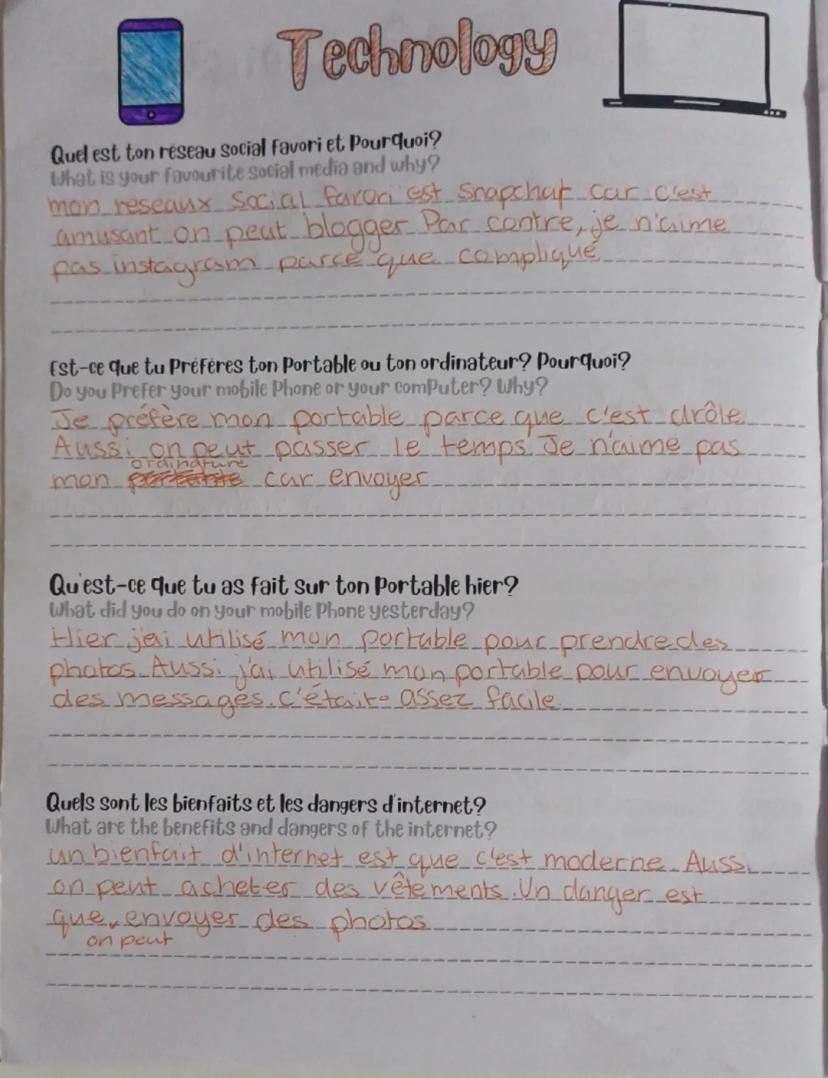 Technology
Quel est ton réseau social favori et Pourquoi?
What is your favourite social media and why?
mon reseaux social favori est snapchat car c'est
amusant on peut blogger Par contre, je n'aime
pas instagram parce que compliqué
Est-ce que tu Préfères ton Portable ou ton ordinateur? Pourquoi?
Do you Prefer your mobile Phone or your computer? Why?
Je préfère mon portable parce que c'est drôle
Aussi on peut passer le temps. Je n'aime pas
ordinature
mon car envoyer
Qu'est-ce que tu as fait sur ton Portable hier?
What did you do on your mobile Phone yesterday?
Hier j'ai utilisé mon portable pour prendre des
photos. Aussi j'ai utilisé mon portable pour envoyer
des messages. c'était assez facile.
Quels sont les bienfaits et les dangers d'internet?
What are the benefits and dangers of the internet?
un bienfait d'internet est que c'est moderne. Aussi
on peut acheter des vêtements. Un danger est
que envoyer des photos
on peut